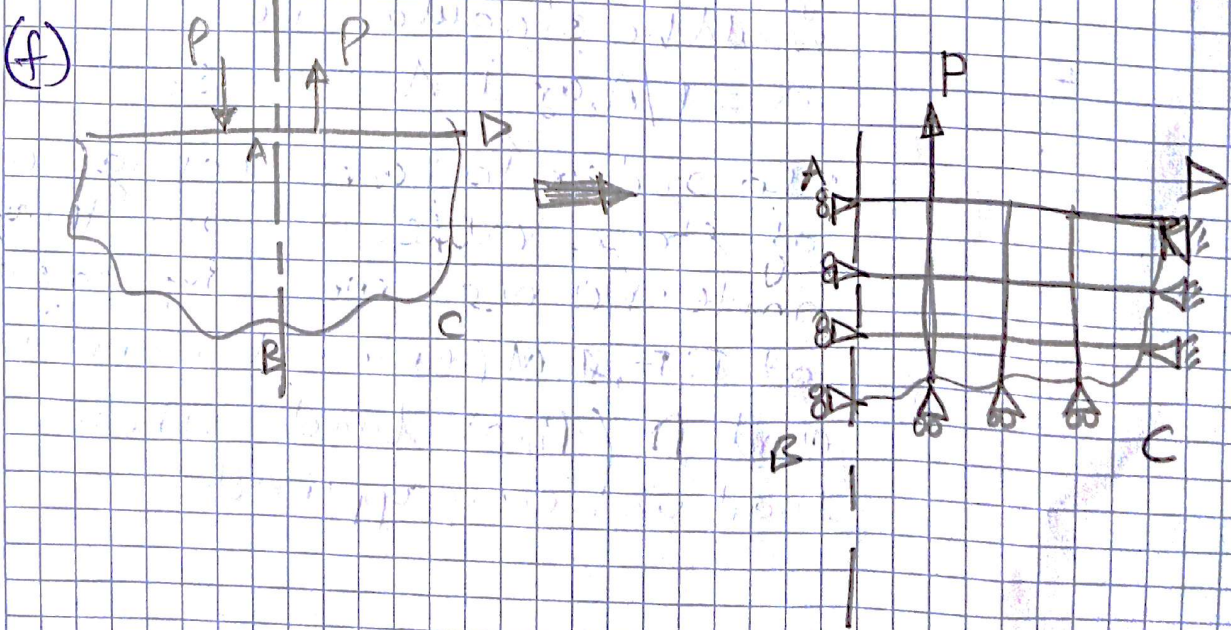 (f)
P P
A D
B
C
P
A D
B C